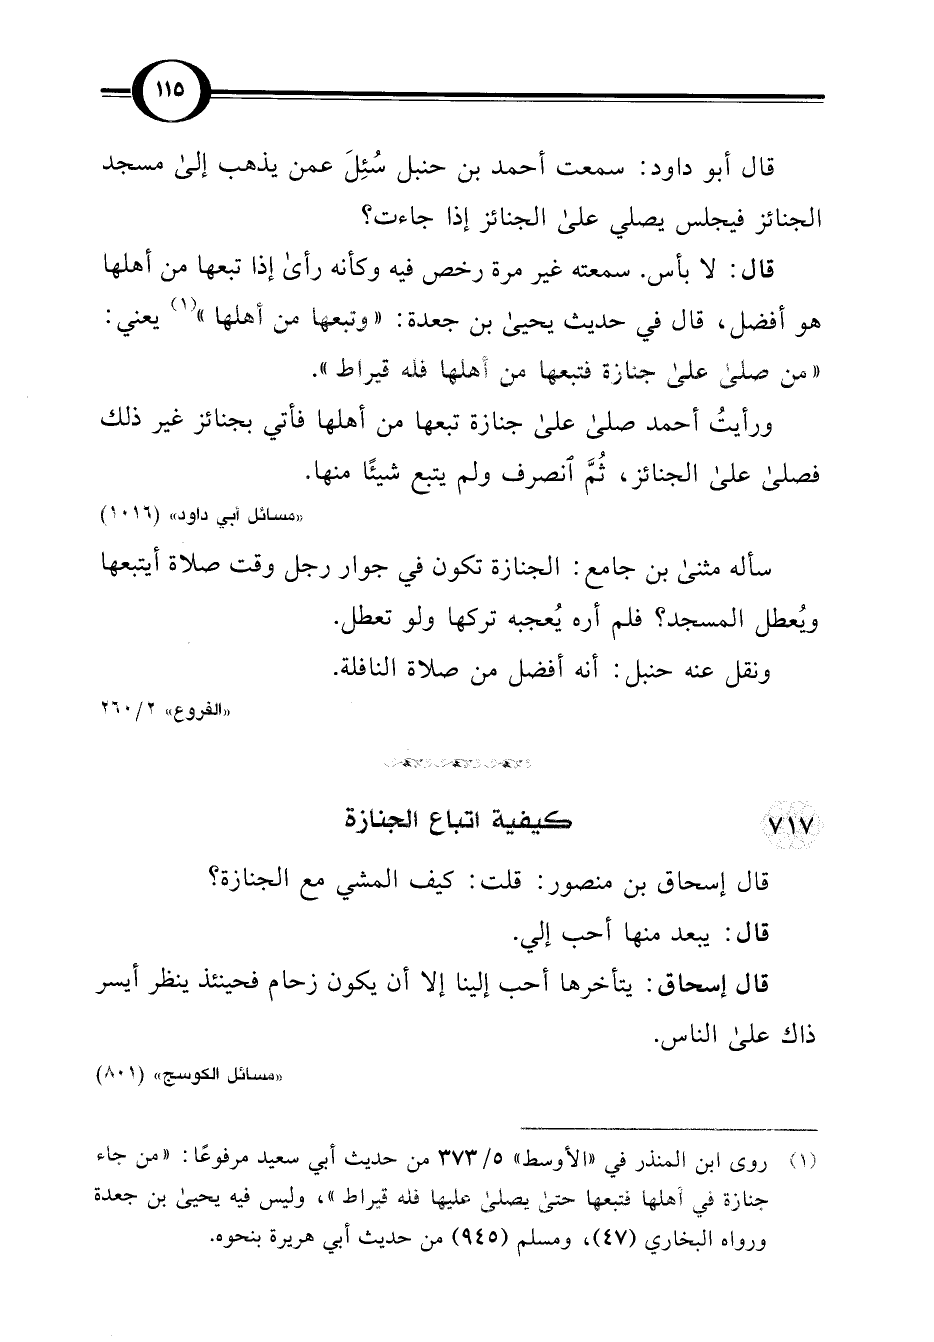 ١١٥
قال أبو داود: سمعت أحمد بن حنبل سُئِلَ عمن يذهب إلىٰ مسجد
الجنائز فيجلس يصلي علىٰ الجنائز إذا جاءت؟
قال: لا بأس. سمعته غير مرة رخص فيه وكأنه رأىٰ إذا تبعها من أهلها
هو أفضل، قال في حديث يحيىٰ بن جعدة: «وتبعها من أهلها»(١) يعني:
«من صلىٰ علىٰ جنازة فتبعها من أهلها فله قيراط».
ورأيتُ أحمد صلىٰ علىٰ جنازة تبعها من أهلها فأتي بجنائز غير ذلك
فصلىٰ علىٰ الجنائز، ثُمَّ ٱنصرف ولم يتبع شيئًا منها.
«مسائل أبي داود» (١٠١٦)
سأله مثنىٰ بن جامع: الجنازة تكون في جوار رجل وقت صلاة أيتبعها
ويُعطل المسجد؟ فلم أره يُعجبه تركها ولو تعطل.
ونقل عنه حنبل: أنه أفضل من صلاة النافلة.
«الفروع» ٢/٢٦٠
٧١٧ كيفية اتباع الجنازة
قال إسحاق بن منصور: قلت: كيف المشي مع الجنازة؟
قال: يبعد منها أحب إلي.
قال إسحاق: يتأخرها أحب إلينا إلا أن يكون زحام فحينئذ ينظر أيسر
ذاك علىٰ الناس.
«مسائل الكوسج» (٨٠١)
(١) روى ابن المنذر في «الأوسط» ٥/٣٧٣ من حديث أبي سعيد مرفوعًا: «من جاء
جنازة في أهلها فتبعها حتىٰ يصلىٰ عليها فله قيراط»، وليس فيه يحيىٰ بن جعدة
ورواه البخاري (٤٧)، ومسلم (٩٤٥) من حديث أبي هريرة بنحوه.